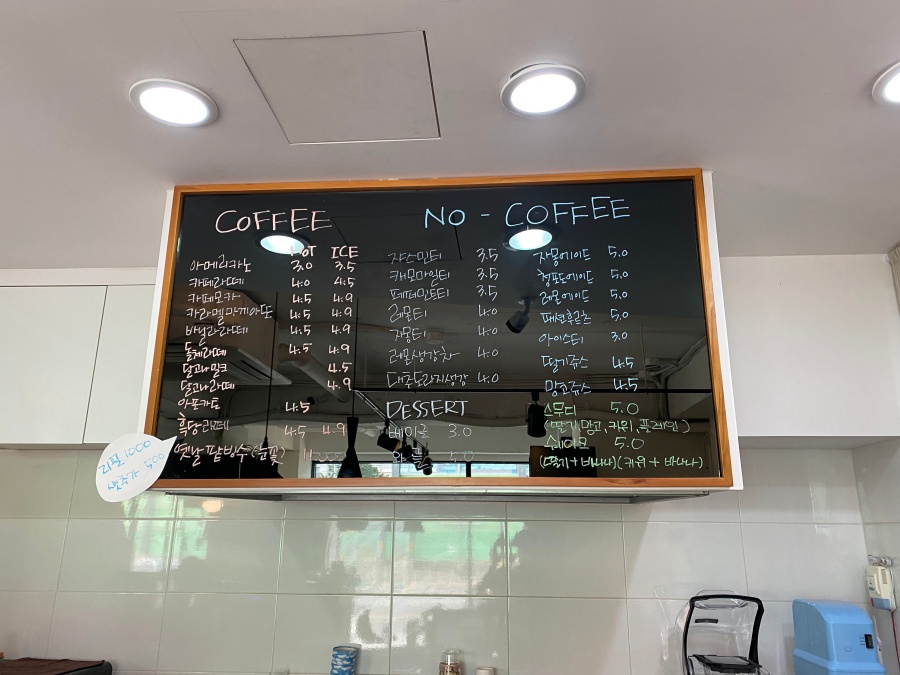 COFFEE
HOT ICE
아메리카노 3.0 3.5
카페라떼 4.0 4.5
카페모카 4.5 4.9
카라멜마끼아또 4.5 4.9
바닐라라떼 4.5 4.9
돌체라떼 4.5 4.9
달고나밀크 4.5
달고나라떼 4.9
아포카토 4.5
흑당라떼 4.5 4.9
옛날 팥빙수(눈꽃)
리필 1000
샷추가 500
NO - COFFEE
쟈스민티 3.5
캐모마일티 3.5
페퍼민트티 3.5
레몬티 4.0
자몽티 4.0
레몬생강차 4.0
대추도라지생강 4.0
DESSERT
베이글 3.0
와플 5.0
자몽에이드 5.0
청포도에이드 5.0
레몬에이드 5.0
패션후르츠 5.0
아이스티 3.0
딸기쥬스 4.5
망고쥬스 4.5
스무디 5.0
(딸기, 망고, 키위, 플레인)
쉐이크 5.0
(딸기+바나나)(키위+바나나)